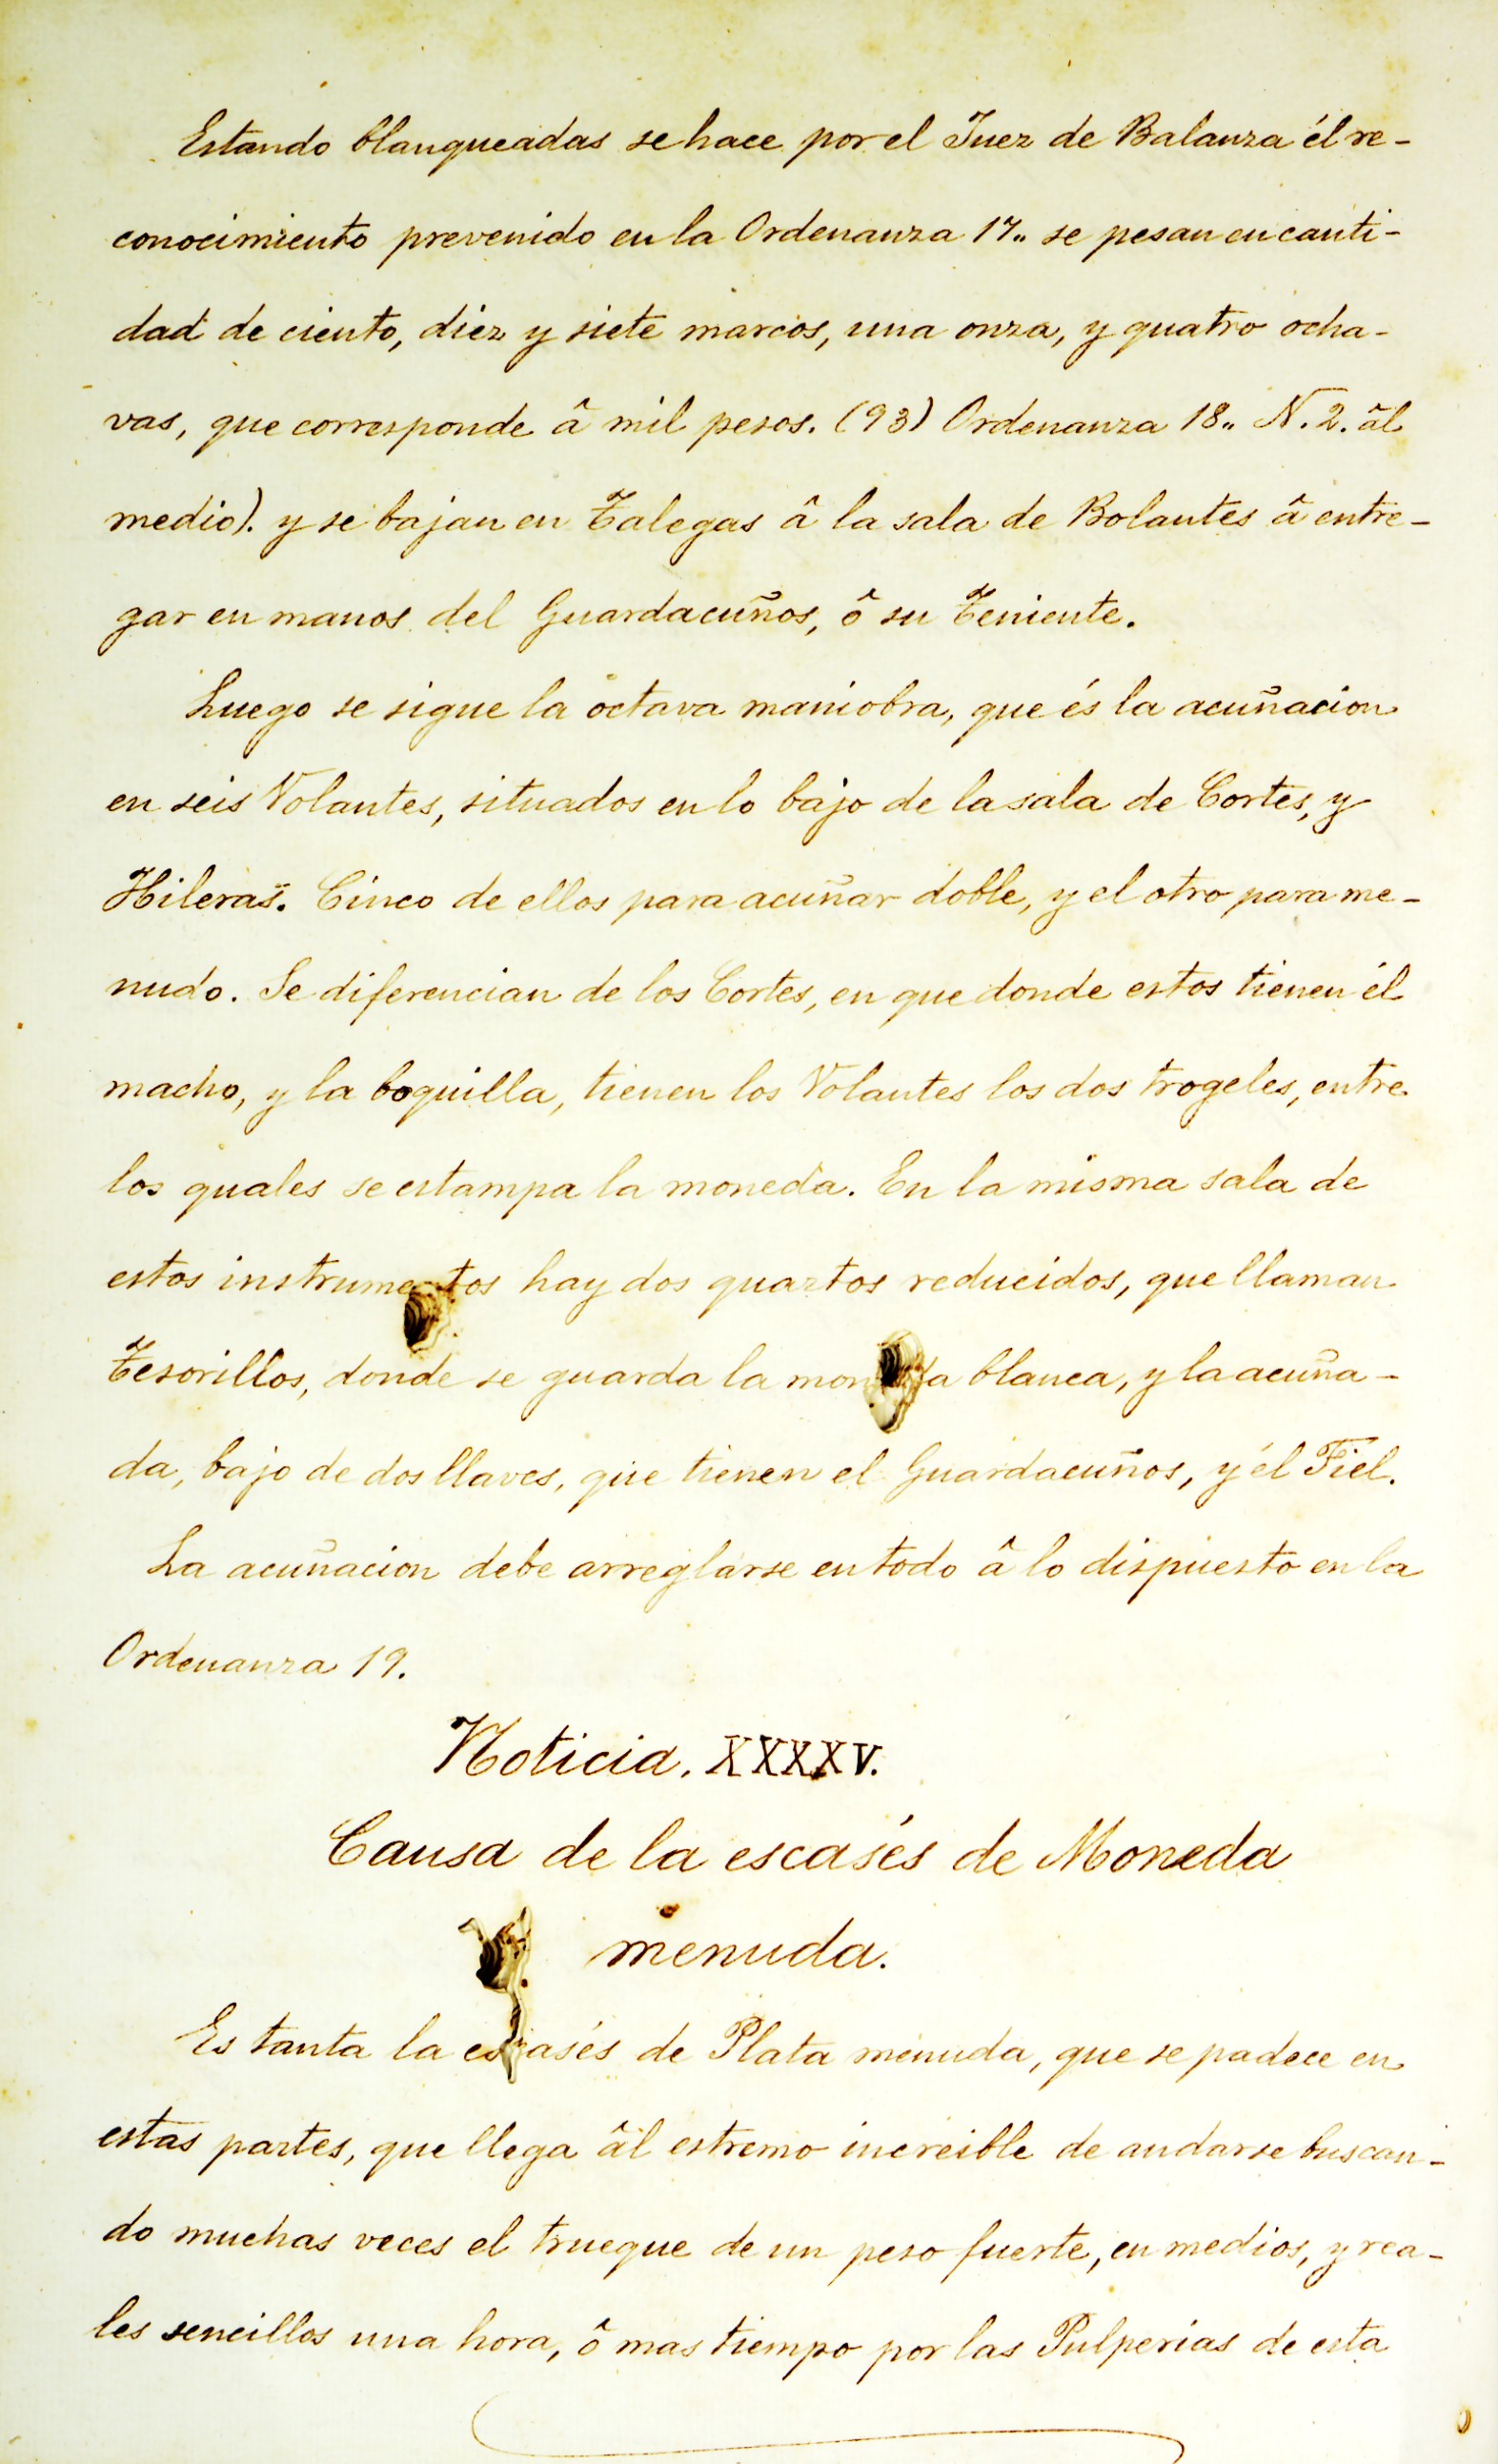 Estando blanqueadas se hace por el Juez de Balanza él re-
conocimiento prevenido en la Ordenanza 17.. se pesan en canti-
dad de ciento, diez y siete marcos, una onza, y quatro ocha-
vas, que corresponde â mil pesos. (93) Ordenanza 18.. N. 2. âl
medio). y se bajan en Talegas â la sala de Bolantes â entre-
gar en manos del Guardacuños, ô su Teniente.
Luego se sigue la octava maniobra, que és la acuñacion
en seis Volantes, situados en lo bajo de la sala de Cortes, y
Hileras. Cinco de ellos para acuñar doble, y el otro para me-
nudo. Se diferencian de los Cortes, en que donde estos tienen él
macho, y la boquilla, tienen los Volantes los dos trogeles, entre
los quales se estampa la moneda. En la misma sala de
estos instrumentos hay dos quartos reducidos, que llaman
Tesorillos, donde se guarda la moneda blanca, y la acuña-
da, bajo de dos llaves, que tienen el Guardacuños, y él Fiel.
La acuñacion debe arreglarse en todo â lo dispuesto en la
Ordenanza 19.
Noticia. XXXXV.
Causa de la escasés de Moneda
menuda.
Es tanta la escasés de Plata menuda, que se padece en
estas partes, que llega âl estremo increible de andarse buscan-
do muchas veces el trueque de un peso fuerte, en medios, y rea-
les sencillos una hora, ô mas tiempo por las Pulperias de esta